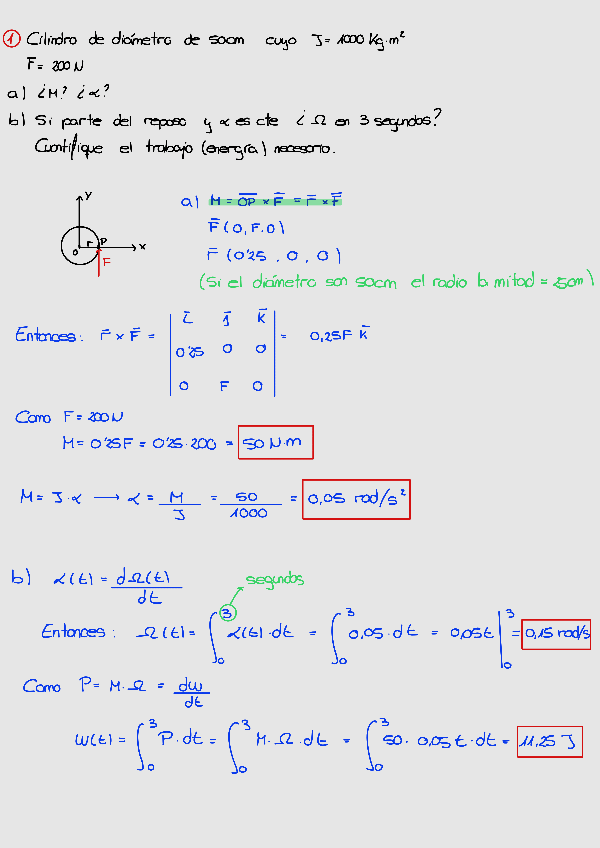 ① Cilindro de diámetro de 50cm cuyo J = 1000 Kg·m²
F̄ = 200N
a) ¿M? ¿α?
b) Si parte del reposo y α es cte ¿Ω en 3 segundos?
Cuantifique el trabajo (energía) necesario.
y
a) M̄ = O̅P̅ × F̄ = r̄ × F̄
r P
O x
F̄ (0, F, 0)
F
r̄ (0'25, 0, 0)
(Si el diámetro son 50cm el radio la mitad = 25cm)
Entonces: r̄ × F̄ = | ī j̄ k̄ |
| 0'25 0 0 | = 0,25F k̄
| 0 F 0 |
Como F = 200N
M = 0'25F = 0'25·200 = 50 N·m
M = J·α → α = M/J = 50/1000 = 0,05 rad/s²
b) α(t) = dΩ(t)/dt
segundos
Entonces: Ω(t) = ∫₀³ α(t)·dt = ∫₀³ 0,05·dt = 0,05t |₀³ = 0,15 rad/s
Como P = M·Ω = dw/dt
W(t) = ∫₀³ P·dt = ∫₀³ M·Ω·dt = ∫₀³ 50·0,05t·dt = 11,25 J